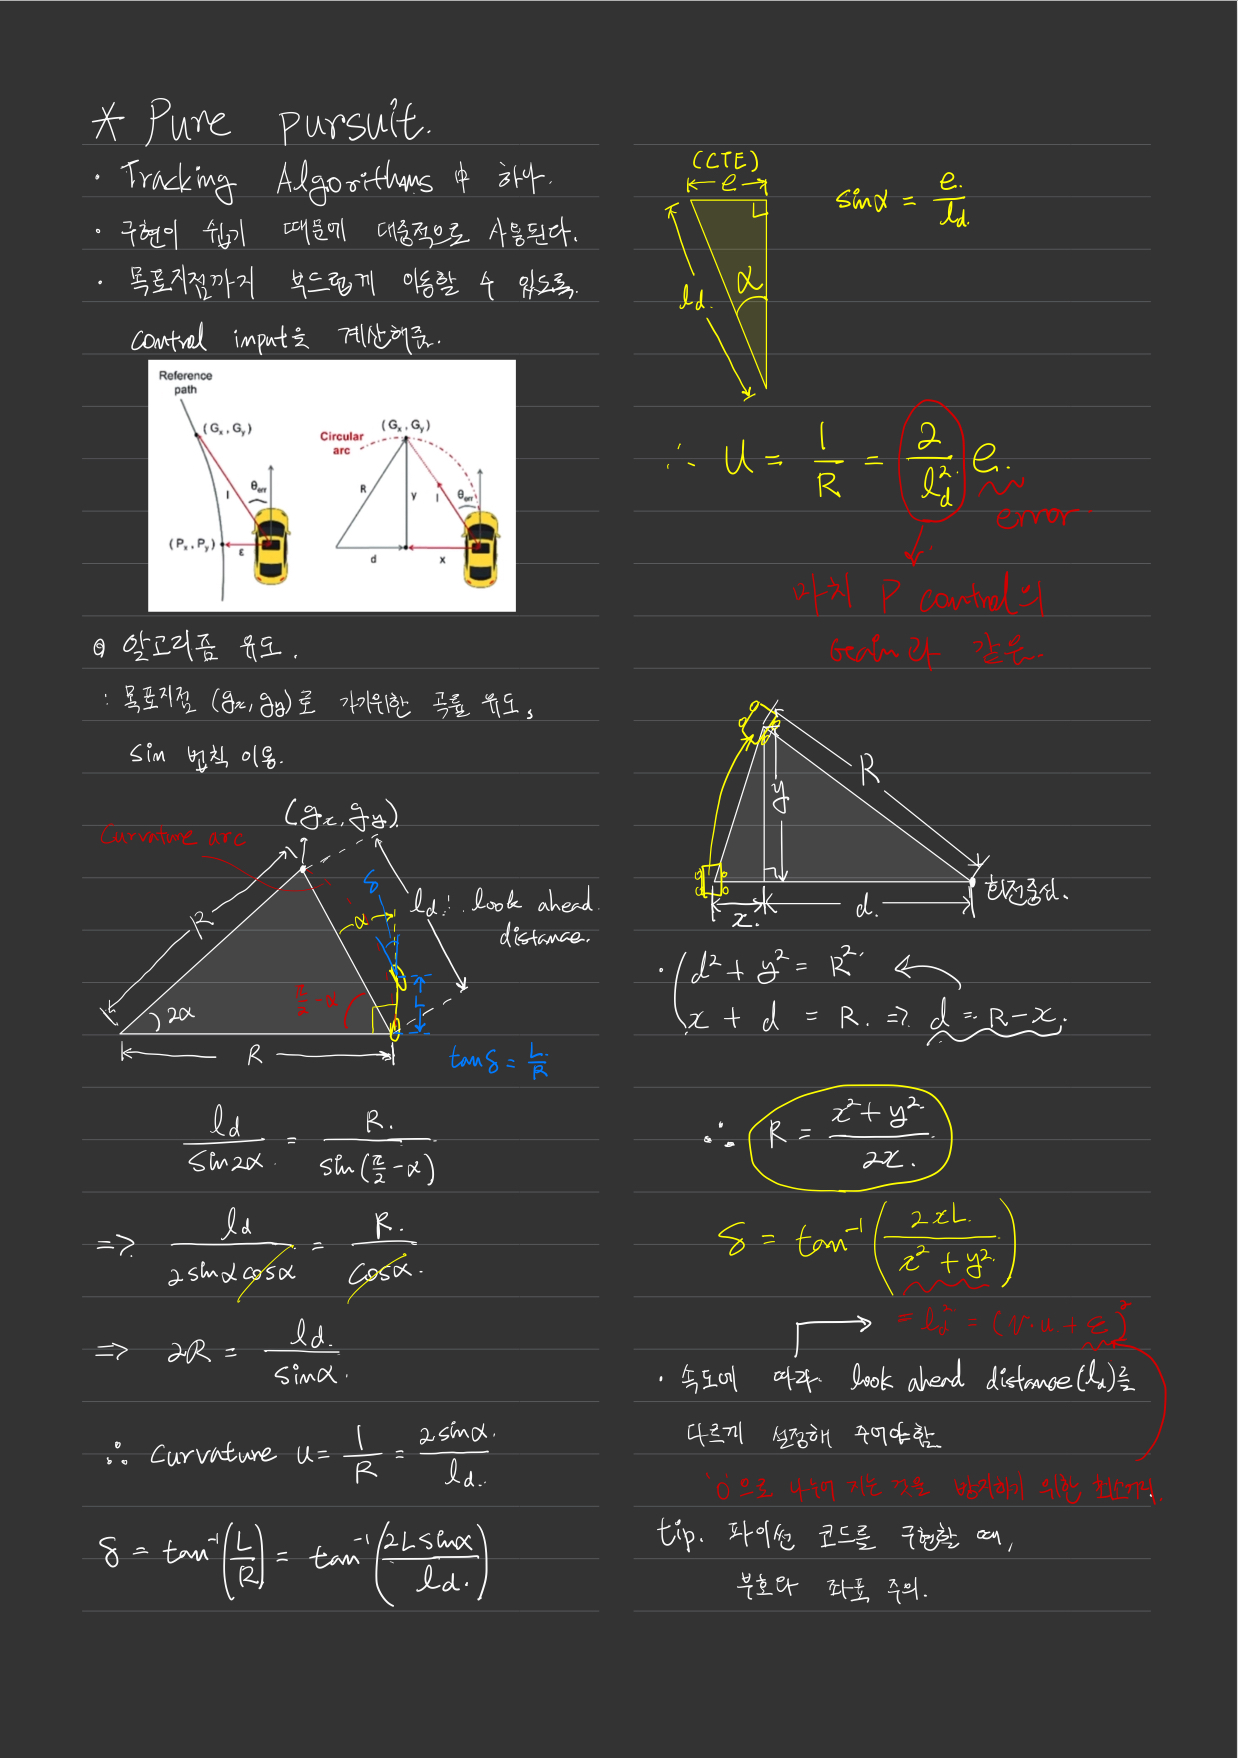 * Pure pursuit.
· Tracking Algorithms 中 하나.
· 구현이 쉽기 때문에 대중적으로 사용된다.
· 목표지점까지 부드럽게 이동할 수 있도록
control input을 계산해줌.
Reference path
(Gx, Gy)
θerr
l
(Px, Py)
ε
Circular arc
(Gx, Gy)
R
y
l
θerr
d
x
알고리즘 유도.
: 목표지점 (gx, gy)로 가기위한 곡률 유도,
sin 법칙 이용.
(gx, gy)
Curvature arc
R
δ
α
ld : look ahead distance.
π/2 - α
L
2α
R
tanδ = L/R
ld / sin2α = R. / sin(π/2 - α)
=> ld / 2sinαcosα = R. / cosα.
=> 2R = ld. / sinα.
∴ Curvature u = 1/R = 2sinα. / ld.
δ = tan⁻¹(L/R) = tan⁻¹(2Lsinα / ld.)
(CTE)
e
sinα = e. / ld.
α
ld.
∴ u = 1/R = 2/ld² e.
error
마치 P control의
Gain과 같은.
R
y
회전중심.
x.
d.
· d² + y² = R².
x + d = R. => d = R - x.
∴ R = x² + y². / 2x.
δ = tan⁻¹(2xL / x² + y².)
= ld² = (v·u + ε)²
· 속도에 따라 look ahead distance(ld)를
다르게 설정해 주어야함
'0'으로 나누어 지는 것을 방지하기 위한 최소거리.
tip. 파이썬 코드를 구현할 때,
부호와 좌표 주의.